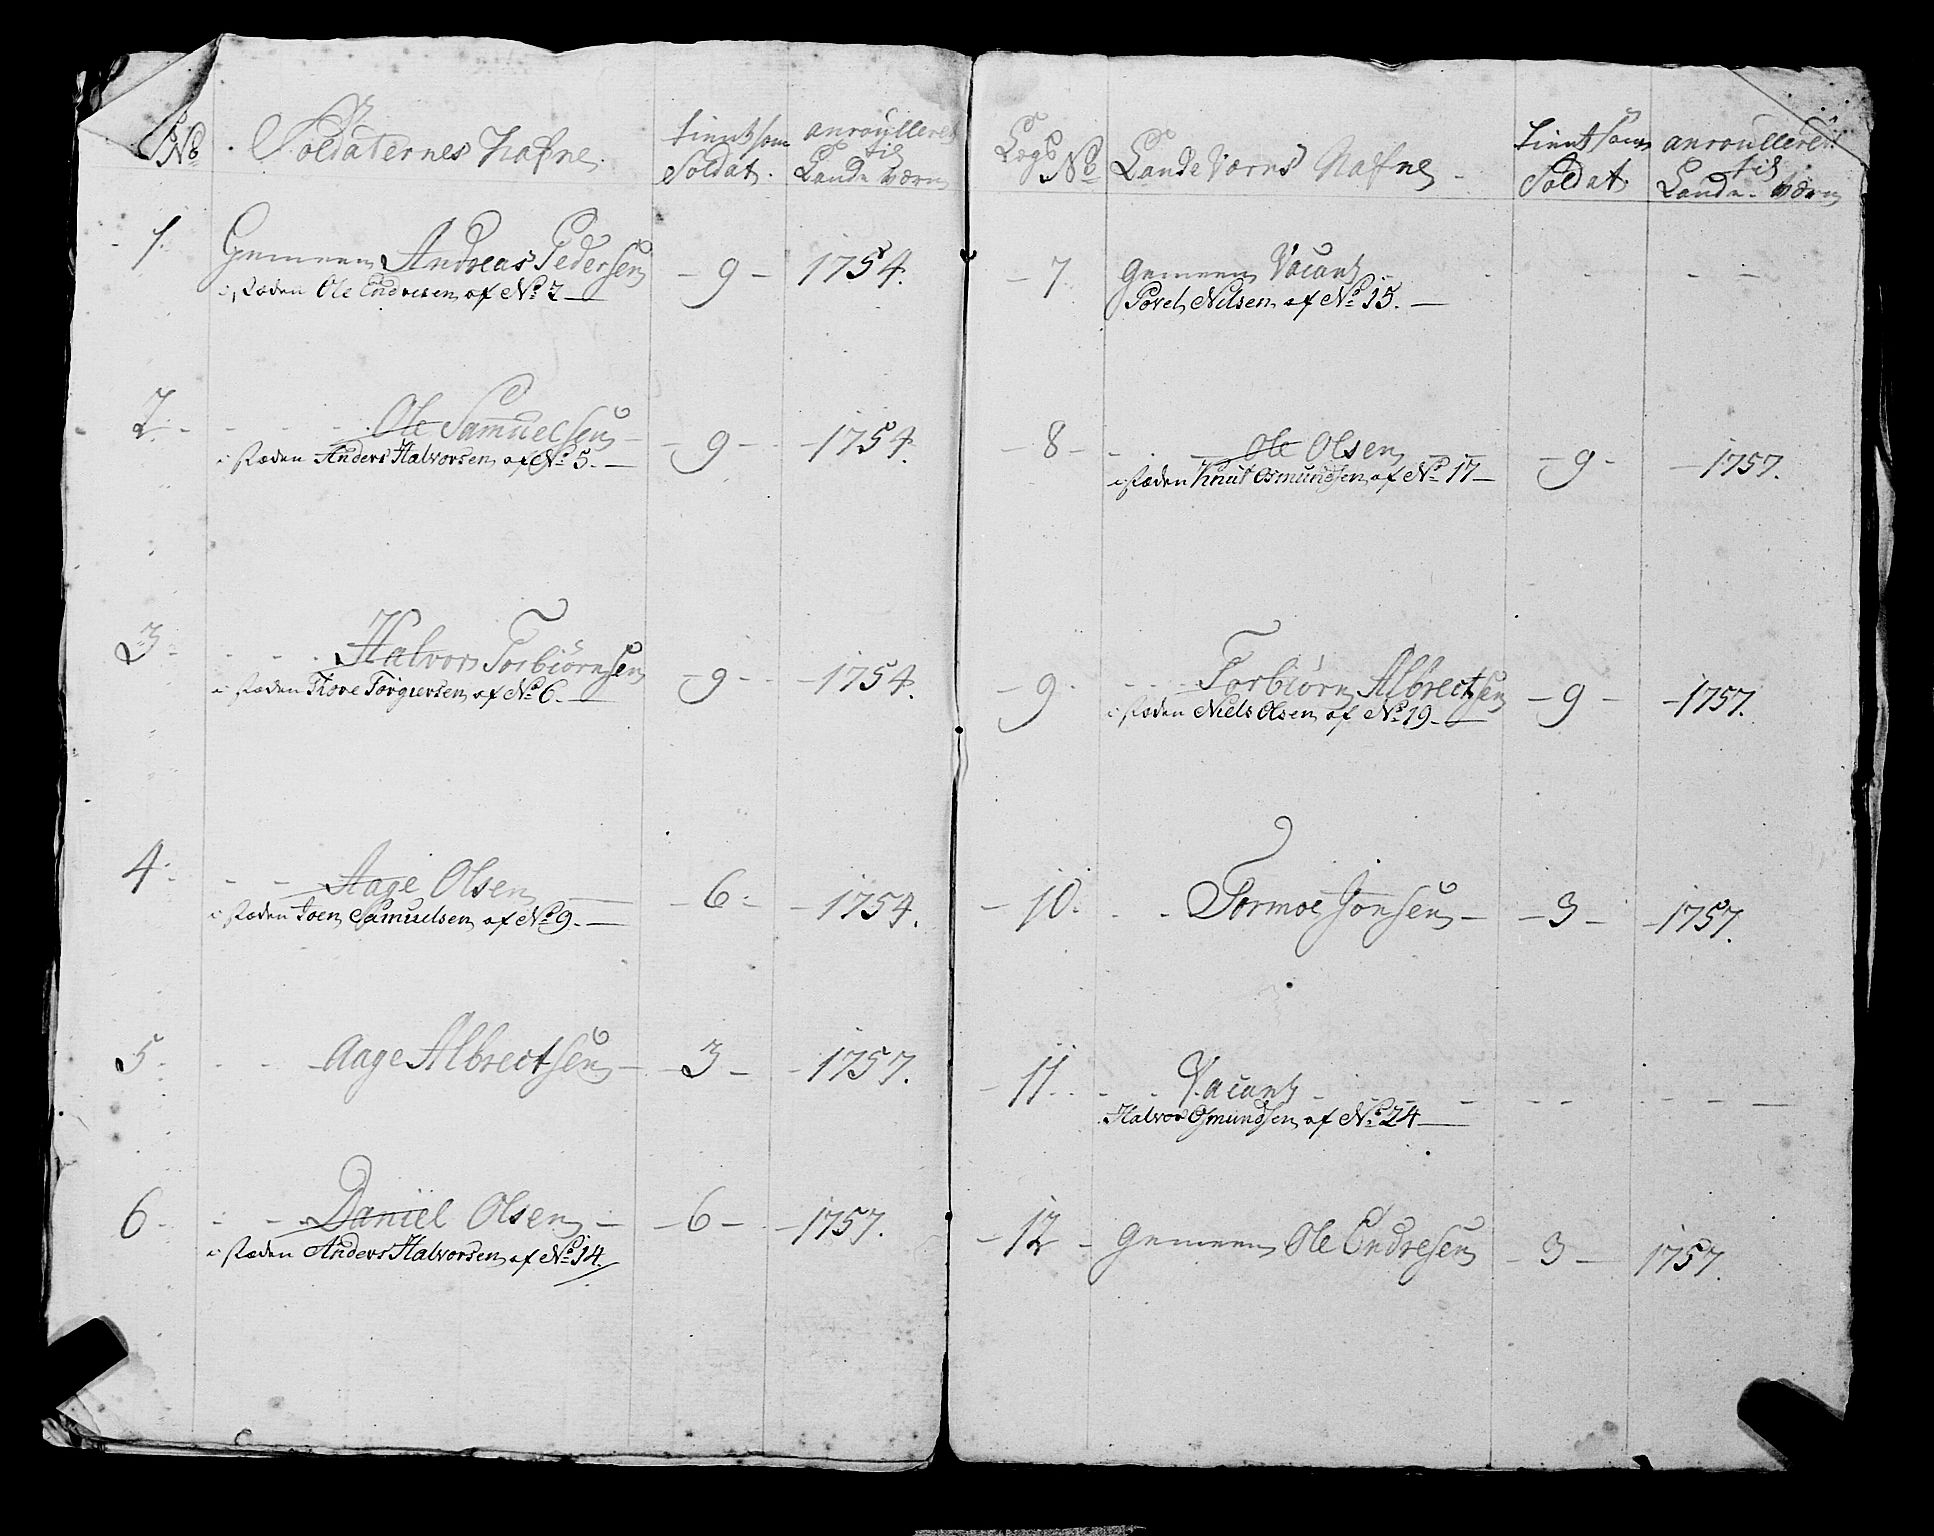 No Soldaternes Nafne. tient som Soldat. anroulleret til Lande værn
1. Gemeen Andreas Pedersen - 9 - 1754.
i stæden Ole Endresen af No 2
2. Ole Samuelsen - 9 - 1754.
i stæden Anders Halvorsen af No 5.
3. Halvor Torbiørnsen - 9 - 1754.
i stæden Tore Torgiersen af No 6.
4. Aage Olsen - 6 - 1754.
i stæden Joen Samuelsen af No 9.
5. Aage Albrectsen - 3 - 1757.
6. Daniel Olsen - 6 - 1757.
i stæden Anders Halvorsen af No 14.
Lægs No Lande Værns Nafne tient som Soldat anroulleret til Lande værn
7. Gemeen Vacant
Povel Nilsen af No 15.
8. Ole Olsen - 9 - 1757.
i stæden Knut Osmundsen af No 17
9. Torbiørn Albrectsen - 9 - 1757.
i stæden Niels Olsen af No 19.
10. Tormoe Jonsen - 3 - 1757.
11. Vacant
Halvor Osmundsen af No 24
12 - Gemeen Ole Endresen - 3 - 1757.